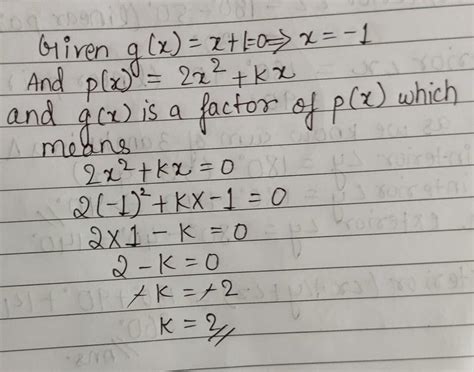 Given g(x) = x+1=0 ⇒ x = -1
And p(x) = 2x² + kx
and g(x) is a factor of p(x) which
means
2x² + kx = 0
2(-1)² + k×-1 = 0
2×1 - k = 0
2 - k = 0
-k = -2
k = 2//